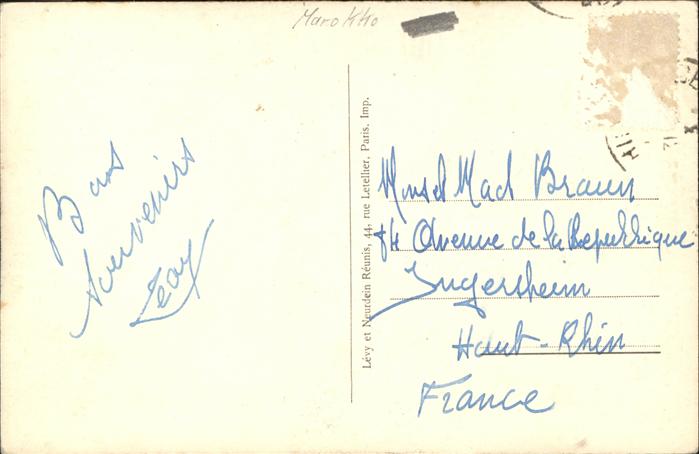 Marokko
Bons
Souvenirs
Lévy et Neurdein Réunis, 44, rue Letellier, Paris. Imp.
Braun
Avenue de la Republique
Ingersheim
Haut-Rhin
France